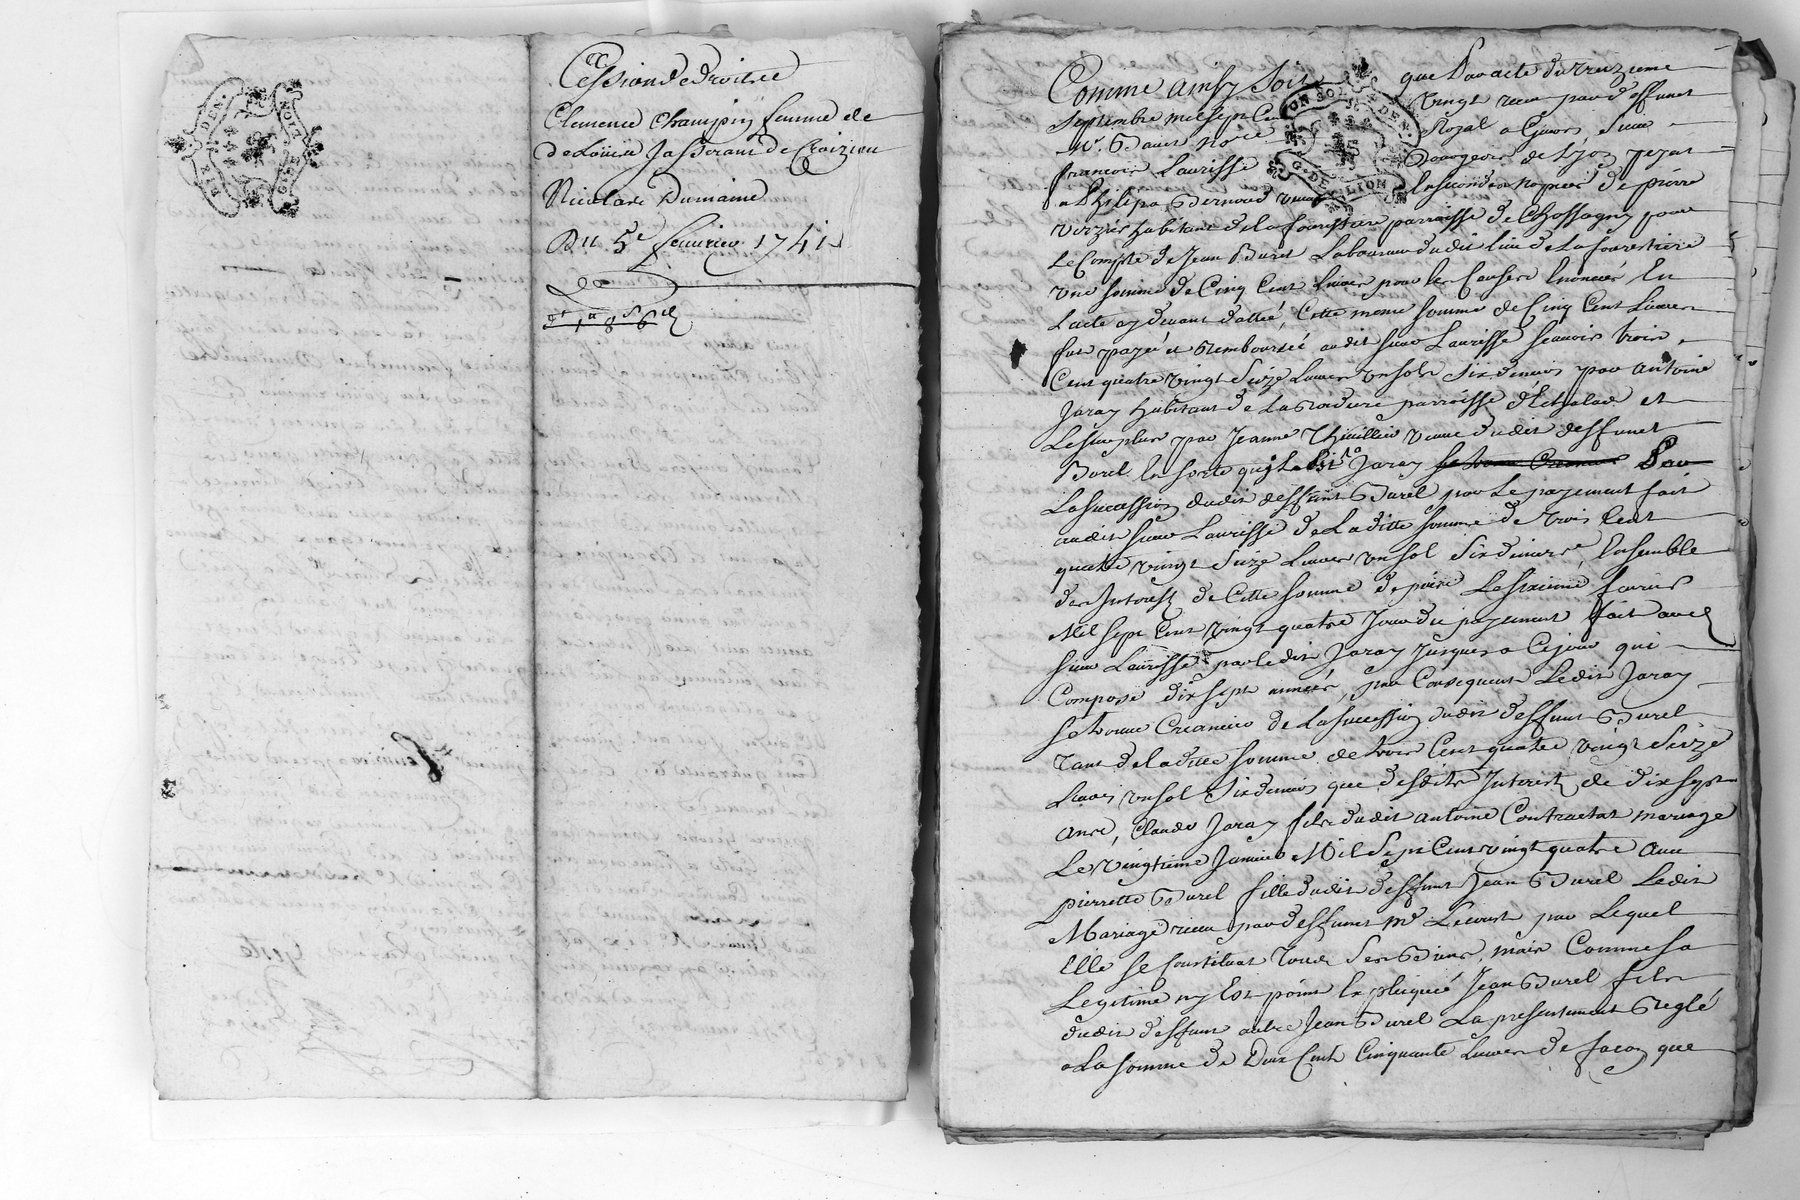 Cession de droits
Clemence Champin femme de
de Louis Jasserant de Croizieu
Nicolas Dumaine
Du 5e feuvrier 1741
Comme ainsy soit que Par acte du treizieme
Septembre mil sept Cent vingt receu par deffunct
Me Royal a Givors, sieur
francois Laurisse Bourgeois de Lyon
a Philipa Bernoud veuve en secondes nopces de pierre
habitant de la forestiere parroisse de Chassagny pour
Le Compte de Jean Burel Laboureur dudit lieu de La forestiere
une somme de Cinq Cent Livres pour les Causes Enoncées En
L'acte cy devant datté, Cette meme somme de Cinq Cent Livres
fut payée et Remboursée audit sieur Laurisse scavoir trois
Cent quatre vingt seize Livres un sols six deniers par antoine
Jaray habitant de La parroisse d'Echalas et
Le surplus par Jeanne Thuillier veuve dudit deffunct
Burel En sorte que Ledit Jaray se trouve Creancier Par
La succession dudit deffunt Burel par Le payement fait
audit sieur Laurisse de Laditte somme de trois Cent
quatre vingt seize Livres un sol six deniers Ensemble
des Interest de Cette somme depuis Le sixieme fevrier
Mil sept Cent vingt quatre Jour du payement fait au d
sieur Laurisse par ledit Jaray Jusques a Ce jour qui
Compose dix sept années, par Consequent Ledit Jaray
se trouve Creancier de La succession dudit deffunt Burel
Tant de laditte somme de trois Cent quatre vingt seize
Livres un sol six deniers que desdits Interest de dix sept
ans, Claude Jaray fils dudit antoine Contractat mariage
Le vingtieme Janvier Mil Sept Cent vingt quatre avec
pierrette Burel fille dudit deffunt Jean Burel Ledit
Mariage receu par deffunct Me Lecourt par Lequel
Elle se Constituat Tous ses Biens, mais Comme sa
Legitime ny Est point Expliquée Jean Burel fils
dudit deffunt autre Jean Burel La presentement Reglé
a La somme de Deux Cents Cinquante Livres de facon que